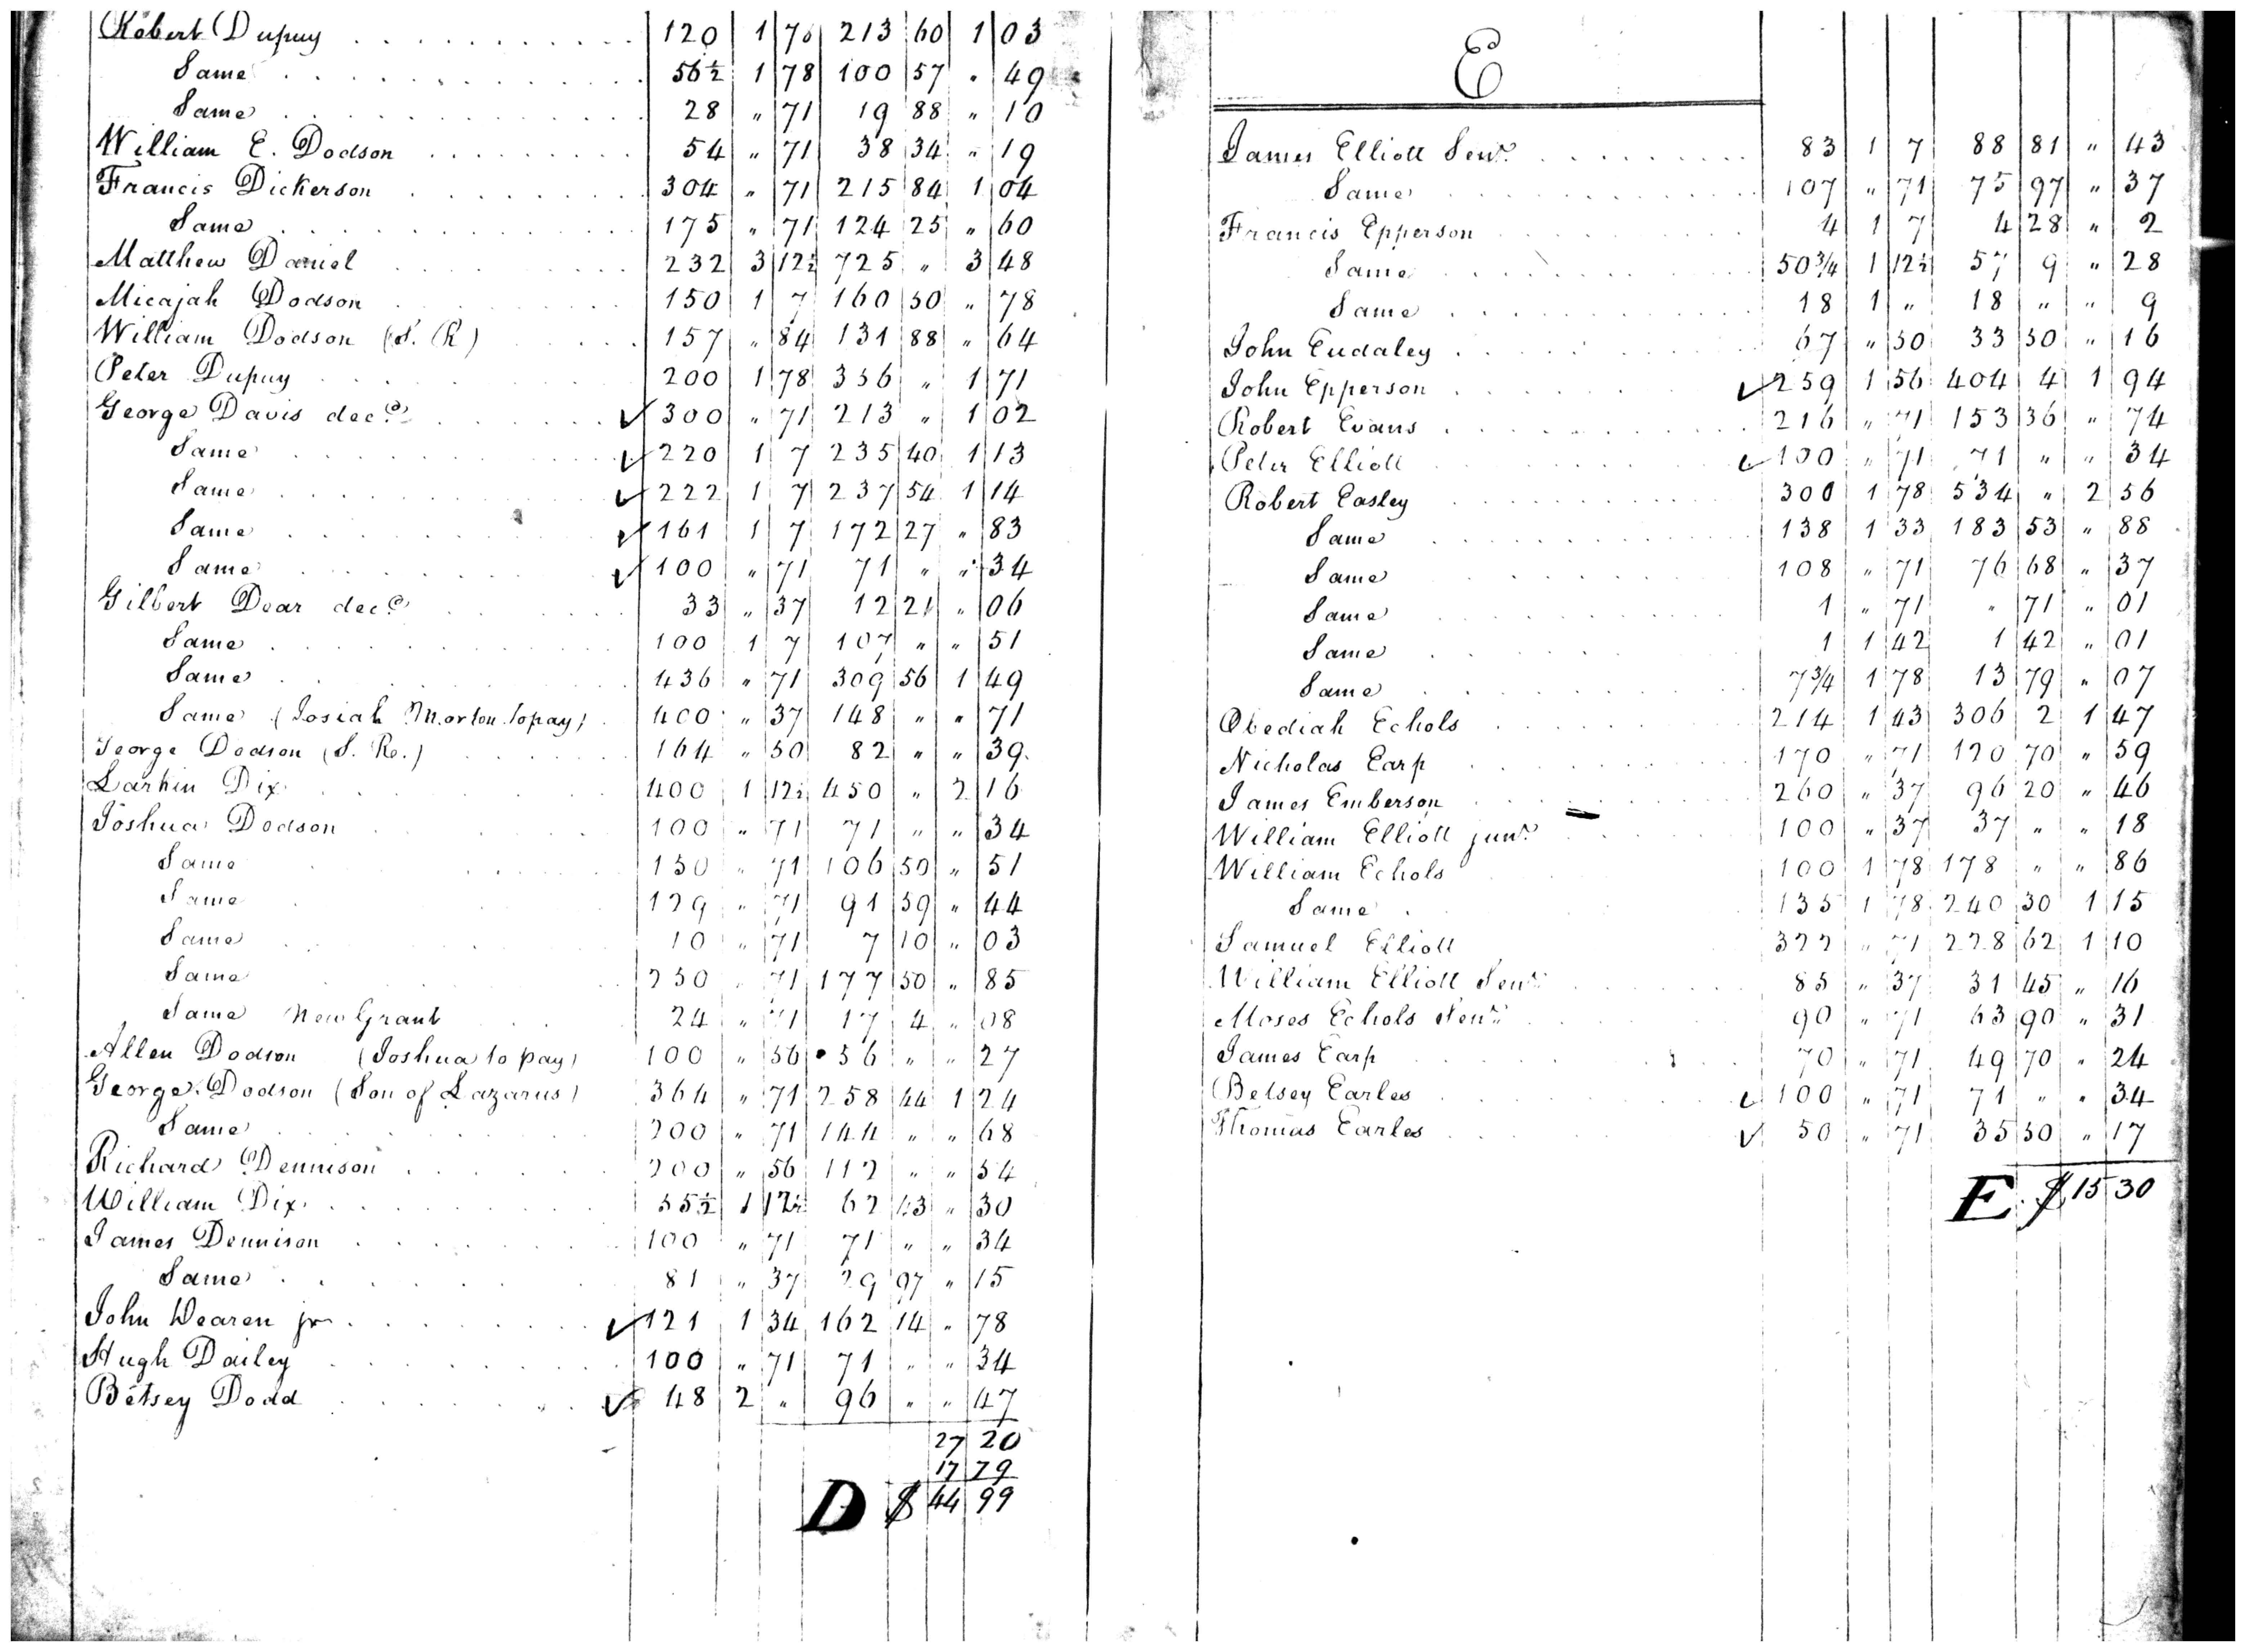 Robert Dupuy 120 1 78 213 60 1 03
Same 56½ 1 78 100 57 " 49
Same 28 " 71 19 88 " 10
William E. Dodson 54 " 71 38 34 " 19
Francis Dickerson 304 " 71 215 84 1 04
Same 175 " 71 124 25 " 60
Matthew Daniel 232 3 12½ 725 " 3 48
Micajah Dodson 150 1 7 160 50 " 78
William Dodson (S. R) 157 " 84 131 88 " 64
Peter Dupuy 200 1 78 356 " 1 71
George Davis decd ✓ 300 " 71 213 " 1 02
Same ✓ 220 1 7 235 40 1 13
Same ✓ 222 1 7 237 54 1 14
Same ✓ 161 1 7 172 27 " 83
Same ✓ 100 " 71 71 " " 34
Gilbert Dear decd 33 " 37 12 21 " 06
Same 100 1 7 107 " " 51
Same 436 " 71 309 56 1 49
Same (Josiah Morton to pay) 400 " 37 148 " " 71
George Dodson (S. Ro.) 164 " 50 82 " " 39
Larkin Dix 400 1 12½ 450 " 2 16
Joshua Dodson 100 " 71 71 " " 34
Same 150 " 71 106 50 " 51
Same 129 " 71 91 59 " 44
Same 10 " 71 7 10 " 03
Same 250 " 71 177 50 " 85
Same New Grant 24 " 71 17 4 " 08
Allen Dodson (Joshua to pay) 100 " 56 56 " " 27
George Dodson (Son of Lazarus) 364 " 71 258 44 1 24
Same 200 " 71 144 " " 68
Richard Dennison 200 " 56 112 " " 54
William Dix 55½ 1 12½ 62 43 " 30
James Dennison 100 " 71 71 " " 34
Same 81 " 37 29 97 " 15
John Dearen jr ✓ 121 1 34 162 14 " 78
Hugh Dailey 100 " 71 71 " " 34
Betsey Dodd ✓ 48 2 " 96 " " 47
27 20
17 79
D $ 44 99
E
James Elliott Senr. 83 1 7 88 81 " 43
Same 107 " 71 75 97 " 37
Francis Epperson 4 1 7 4 28 " 2
Same 50¾ 1 12½ 57 9 " 28
Same 18 1 " 18 " " 9
John Eudaley 67 " 50 33 50 " 16
John Epperson ✓ 259 1 56 404 4 1 94
Robert Evans 216 " 71 153 36 " 74
Peter Elliott ✓ 100 " 71 71 " " 34
Robert Easley 300 1 78 534 " 2 56
Same 138 1 33 183 53 " 88
Same 108 " 71 76 68 " 37
Same 1 " 71 " 71 " 01
Same 1 1 42 1 42 " 01
Same 7¾ 1 78 13 79 " 07
Obediah Echols 214 1 43 306 2 1 47
Nicholas Earp 170 " 71 120 70 " 59
James Emberson 260 " 37 96 20 " 46
William Elliott junr. 100 " 37 37 " " 18
William Echols 100 1 78 178 " " 86
Same 135 1 78 240 30 1 15
Samuel Elliott 322 " 71 228 62 1 10
William Elliott Senr. 85 " 37 31 45 " 16
Moses Echols Senr. 90 " 71 63 90 " 31
James Earp 70 " 71 49 70 " 24
Betsey Earles ✓ 100 " 71 71 " " 34
Thomas Earles ✓ 50 " 71 35 50 " 17
E $ 15 30